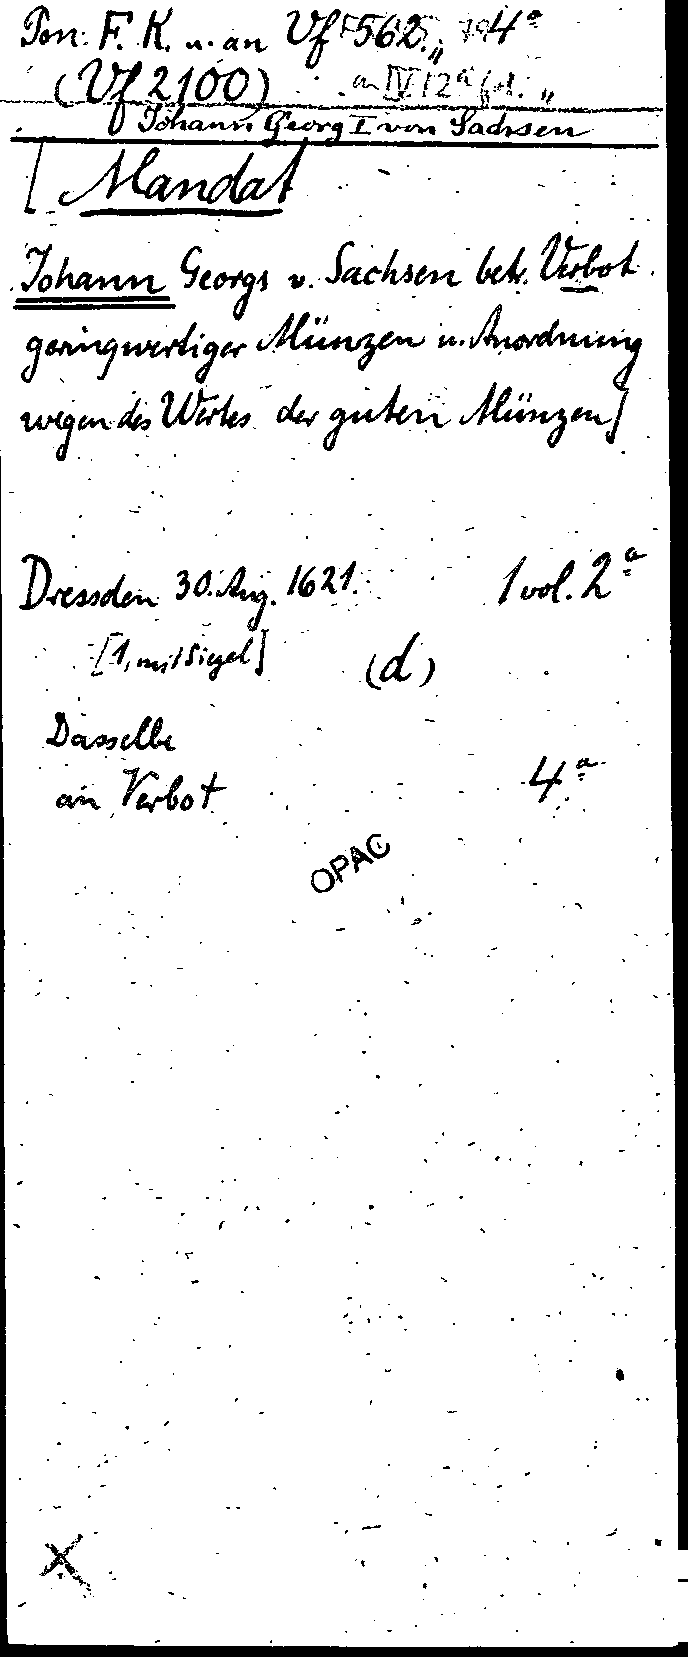 Pon. F. K. u. an Vf 562. 4°
(Vf 2100) an IV 12
Johann Georg I von Sachsen
[Mandat
Johann Georgs v. Sachsen betr. Verbot
geringwertiger Münzen u. Anordnung
wegen des Wertes der guten Münzen]
Dressden 30. Aug. 1621. 1 vol. 2°
[1, mit Siegel] (d)
Dasselbe
an Verbot 4°
OPAC
X